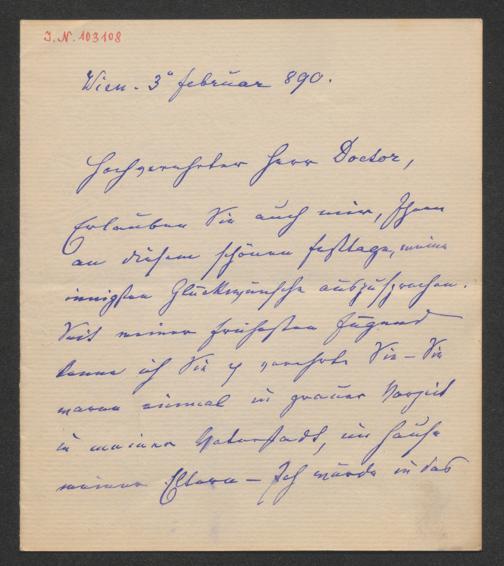 J. N. 103108
Wien. 3ᵗ februar 890.
Hochverehrter Herr Doctor,
Erlauben Sie auch mir, Ihnen
an diesem schönen Festtage, meine
innigsten Glückwünsche auszusprechen.
Seit meiner frühesten Jugend
kenne ich Sie u verehre Sie – Sie
waren einmal in grauer Vorzeit
in meiner Vaterstadt, im Hause
meiner Eltern – Ich würde in das